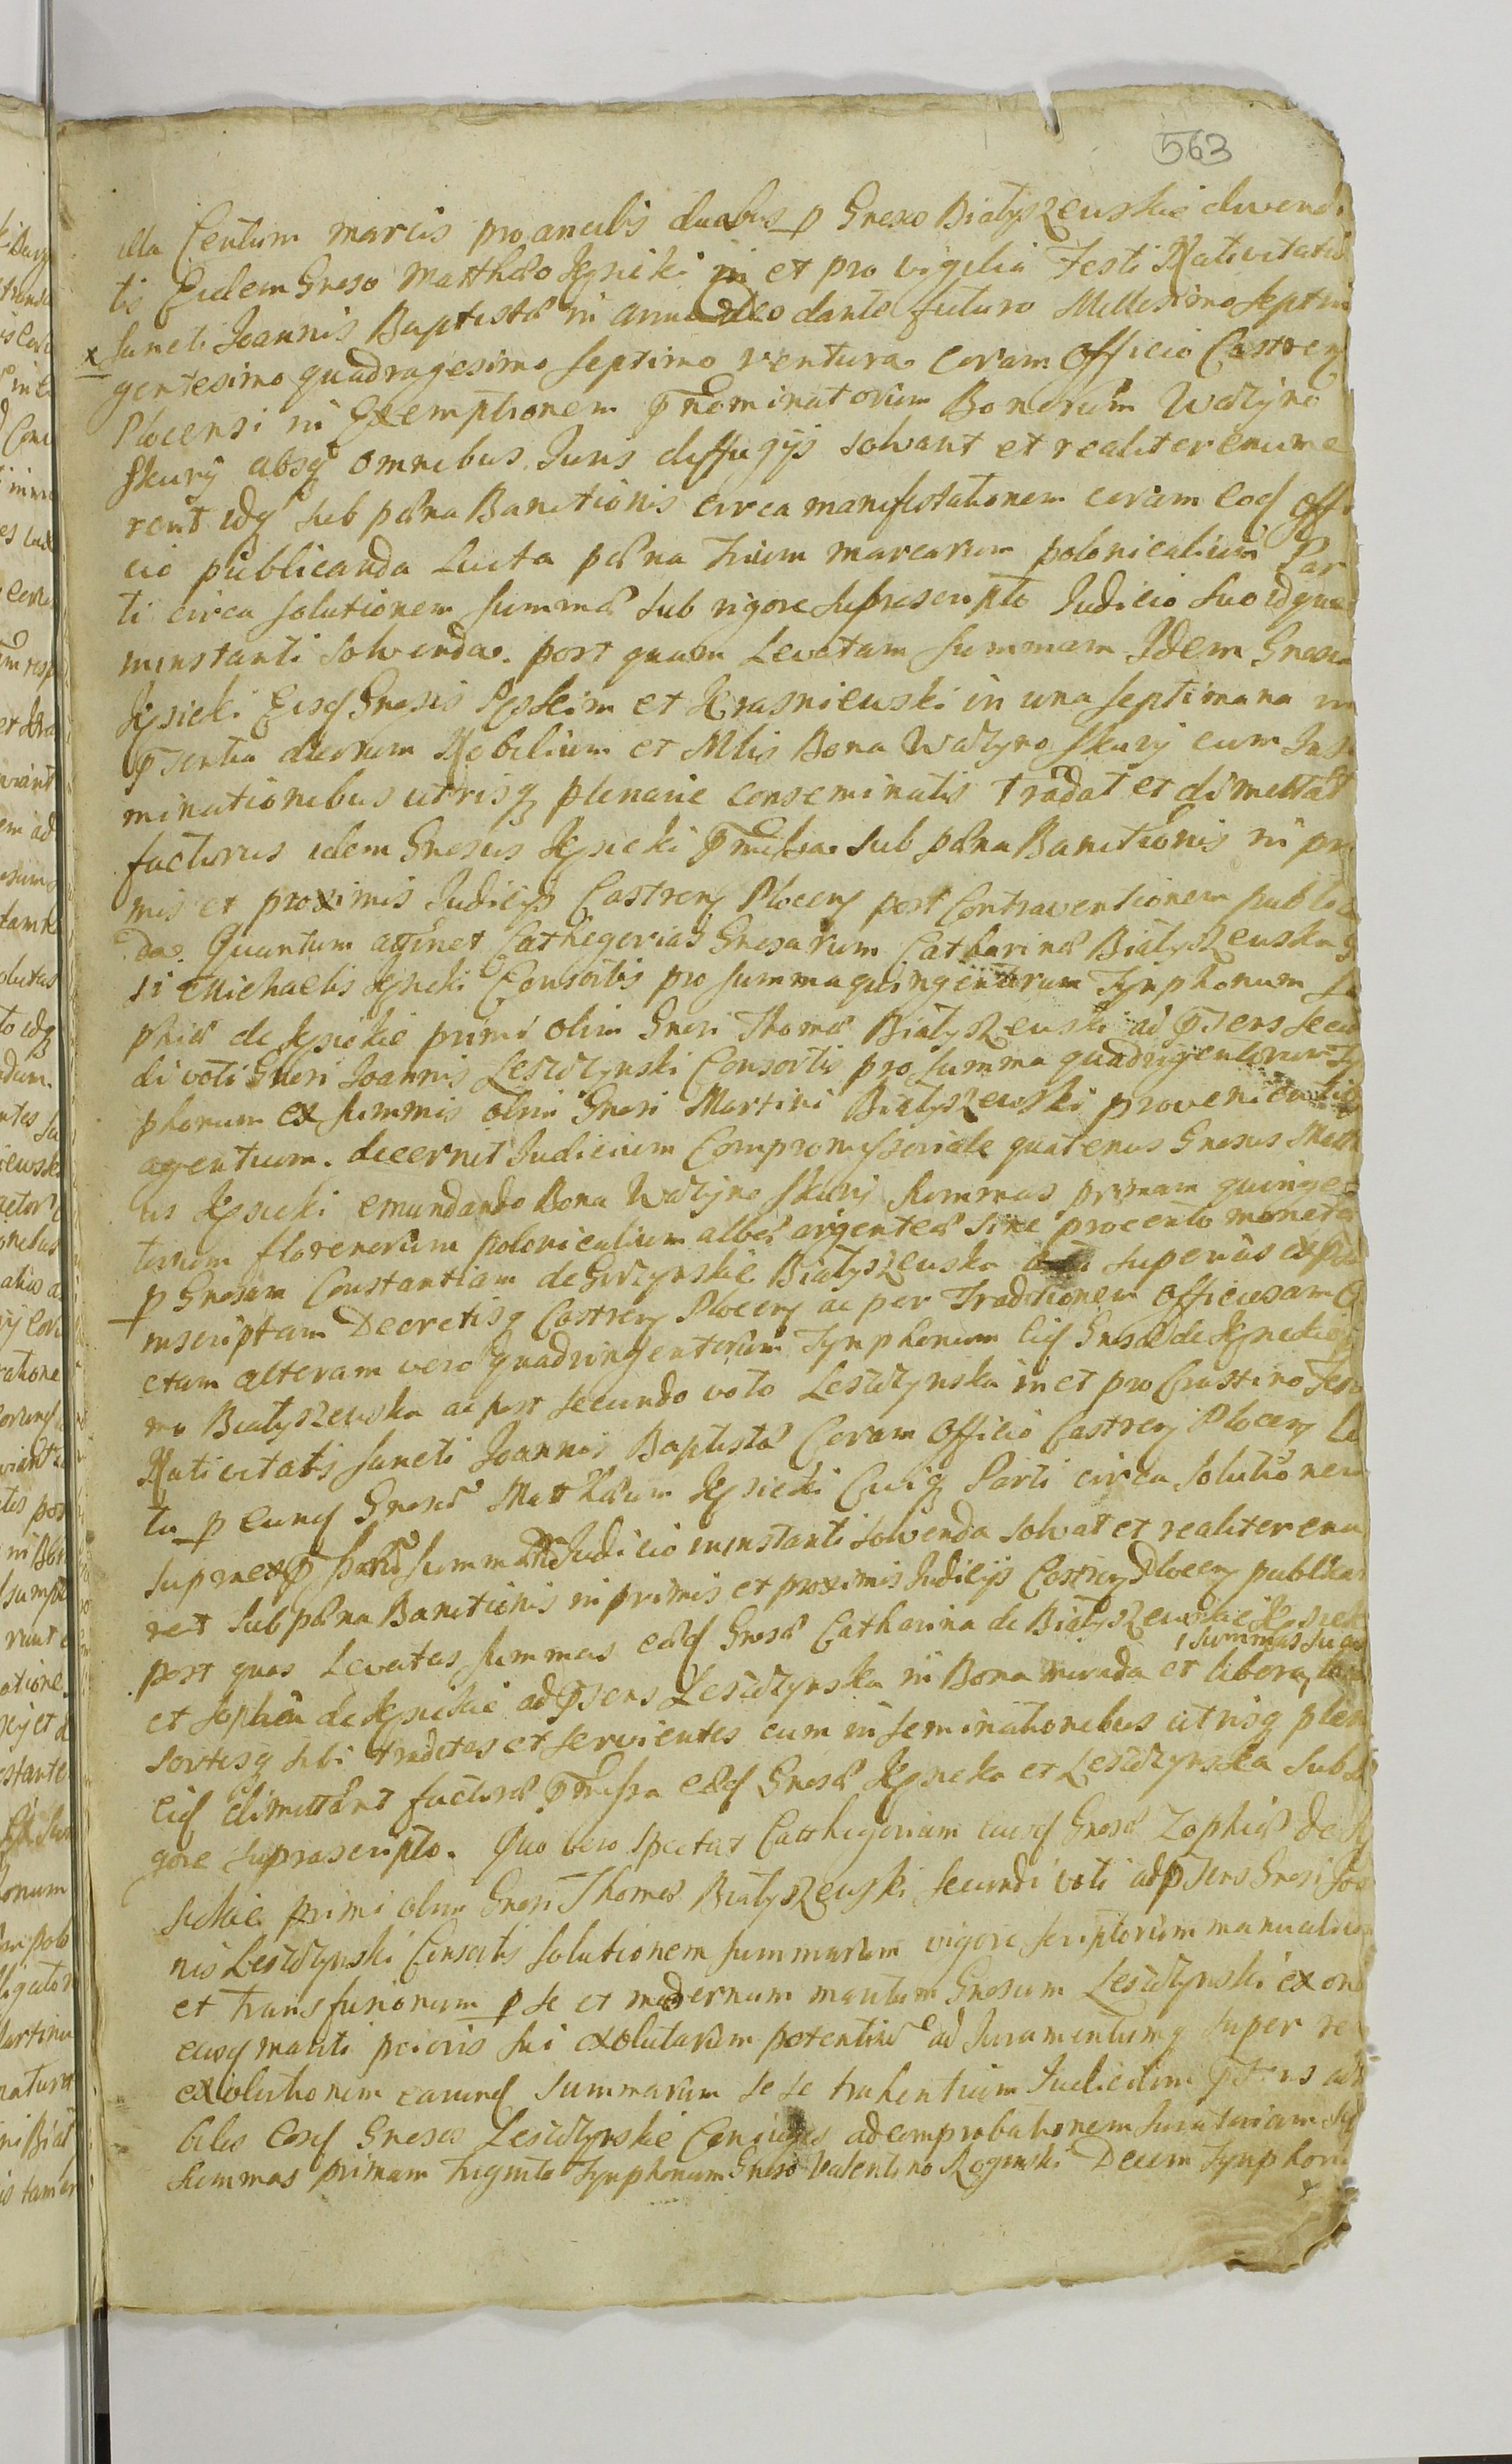 563
illa Centum marcis pro ancilis duabus p Gnexo Białyszewskie divendi
tis Eidem Gnoso Matthæo Kęsicki in et pro vigilia Festi Nativitatis
Sancti Joannis Baptistæ in anno deo dante futuro Millesimo Septin
x gentesimo quadragesimo septimo ventura coram Officio Castren
Plocensi in Exemptionem Pnominatorum Bonorum Ważyno
Skury absq omnibus Juris diffugijs solvant et realiter enume
rent idq sub pæna Banitionis circa manifestationem coram eod offi
cio publicanda Luita pæna trium marcarum polonicalium Par
ti circa solutionem summæ sub rigore suprascripto Judicio suo idque
ininstanti solvenda. post quam Levatam summam Idem Gnosus
Kęsicki Eisd Gnosis et Krasniewski in una septimana in
Psentia duorum Nobilium et Mlis Bona Ważyno Skury cum Inse
minationibus utrisq plenarie conseminatis tradat et dimittat
facturus idem Gnosus Kęsicki Pmissa sub pæna Banitionis in pri
mis et proximis Judicijs Castren Plocen post Contraventionem publica
da. Quantum attinet Cathegorias Gnosarum Catharinæ Białyszewska G
si Michaelis Kęsicki Consortis pro summa quingentorum Tynphonum So
phiæ de Kęsickie primi olim Gnosi Thomæ Białyszewski ad Psens secu
di voti Gnosi Joannis Lesczynski Consortis pro summa quadringentorum Ty
phonum ex summis olim Gnosi Martini Białyszewski provenientiu
agentium. decernit Judicium Compromissoriale quatenus Gnosus Matth
us Kęsicki emundando Bona Ważyno Skury summas primam quingen
torum florenorum polonicalium albæ argenteæ sine procento monetæ
p Gnosam Constantiam de Białyszewska superius
inscriptam Decretisq Castren Plocen ac per Traditionem Officiosam
ctam alteram vero quadringentorum Tynphonum Eid Gnosæ de Kęsickie
mo Białyszewska ac post secundo voto Lesczynska in et pro Crastino Festi
Nativitatis Sancti Joannis Baptistæ Coram Officio Castren Plocen
ta p eund Gnosū Matthæum Kęsicki Cuiq Parti circa solutionem
Summæ Judicio ininstanti solvenda solvat et realiter enu
ret sub pæna Banitionis in primis et proximis Judicijs Castren Plocen publican
post quas Levatas summas eæd Gnosæ Catharina de Białyszewskie Kęsick
summas suas
et Sophia de Kęsickie ad Psens Lesczynska in Bona munda et libera
sortesq sibi traditas et servientes cum inseminationibus utrisq plen
Eid dimittant facturæ Pmissa eæd Gnosæ Kęsicka et Lesczynska sub
gore suprascripto. Quo vero spectat Cathegoriam eiusd Gnosæ Zophiæ de Kę
sickie primi olim Gnosi Thomæ Białyszewski secundi voti ad Psens Gnosi Joa
nis Lesczynski Consortis solutionem summarum vigore scriptorum manualium
et transfusionum p se et modernum maritum Gnosum Lesczynski ex
eiusd mariti prioris sui exolutarum potentiū ad Juramentumq super re
exolutionem earund summarum se se trahentium Judicium Psens
Eosd Gnosos Lesczynskie Conjuges ad comprobationem Juratoriam
Summas primam triginta Tynphonum Gnoso Valentino Rogowski Decem Tynphonu